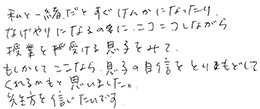 私と一緒だとすぐけんかになったり、
なげやりになるのに、ニコニコしながら
授業を受ける息子をみて、
もしかしてここなら、息子の自信をとりもどして
くれるかもと思いました。
先生方を信じたいです。